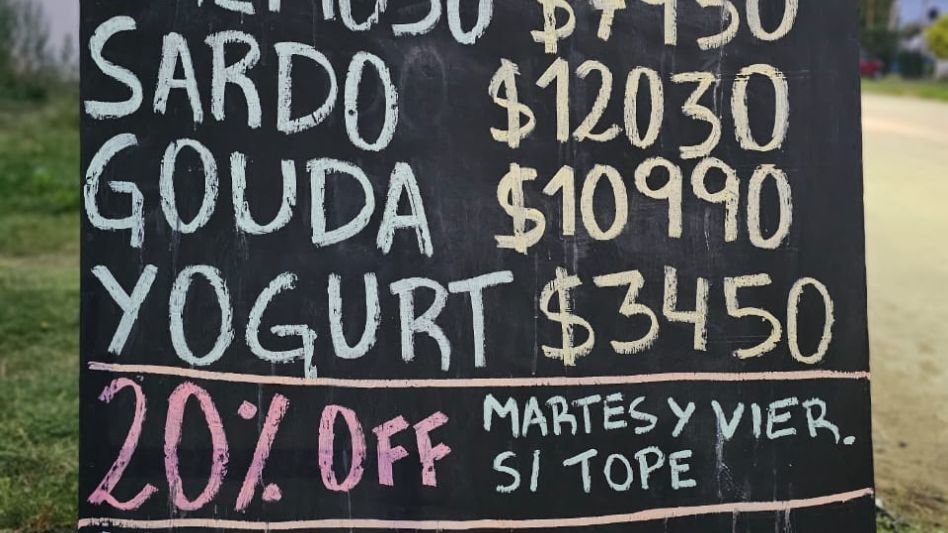 SARDO $12030
GOUDA $10990
YOGURT $3450
20% OFF MARTES Y VIER.
S/ TOPE